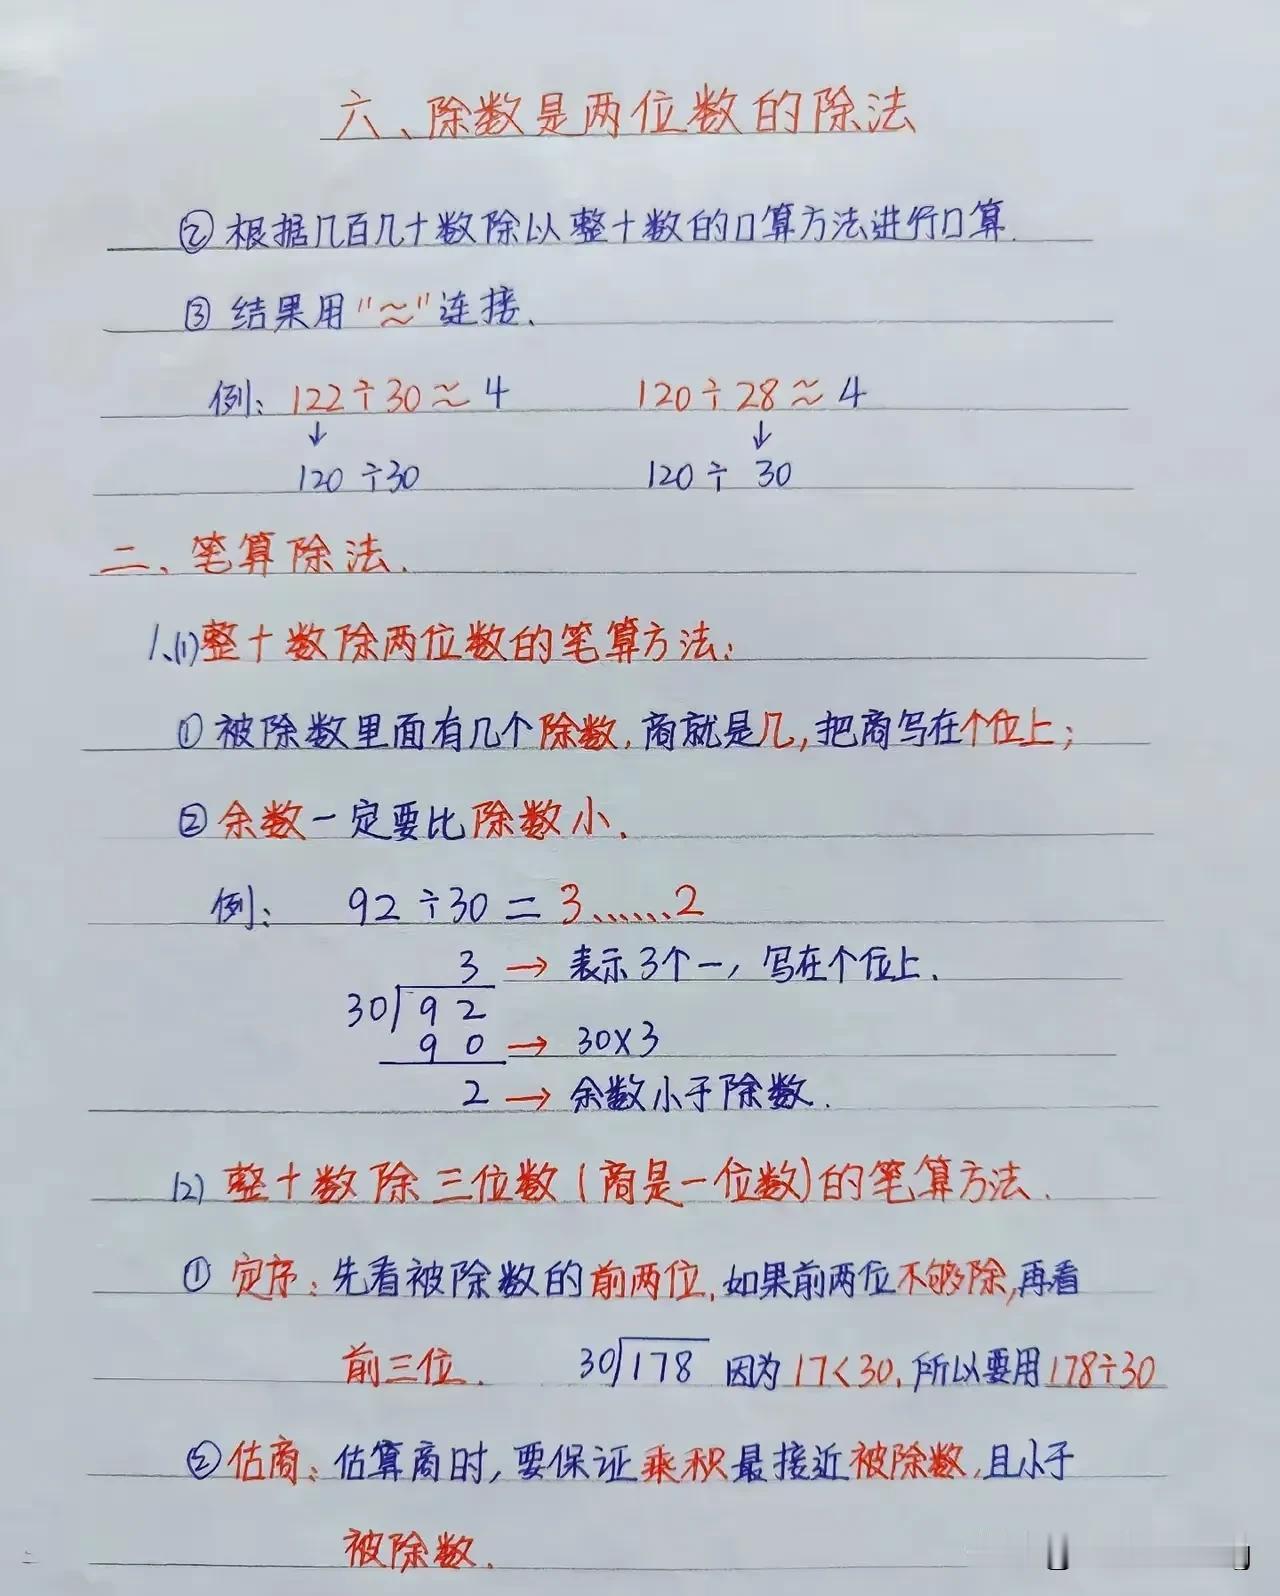 六、除数是两位数的除法
②根据几百几十数除以整十数的口算方法进行口算.
③结果用"≈"连接.
例: 122÷30≈4 120÷28≈4
↓ ↓
120÷30 120÷30
二、笔算除法.
1、(1)整十数除两位数的笔算方法:
①被除数里面有几个除数,商就是几,把商写在个位上;
②余数一定要比除数小.
例: 92÷30=3......2
3 → 表示3个一,写在个位上.
30 92
90 → 30×3
2 → 余数小于除数.
(2) 整十数除三位数(商是一位数)的笔算方法.
①定序:先看被除数的前两位,如果前两位不够除,再看
前三位. 30 178 因为17<30,所以要用178÷30
②估商:估算商时,要保证乘积最接近被除数,且小于
被除数.